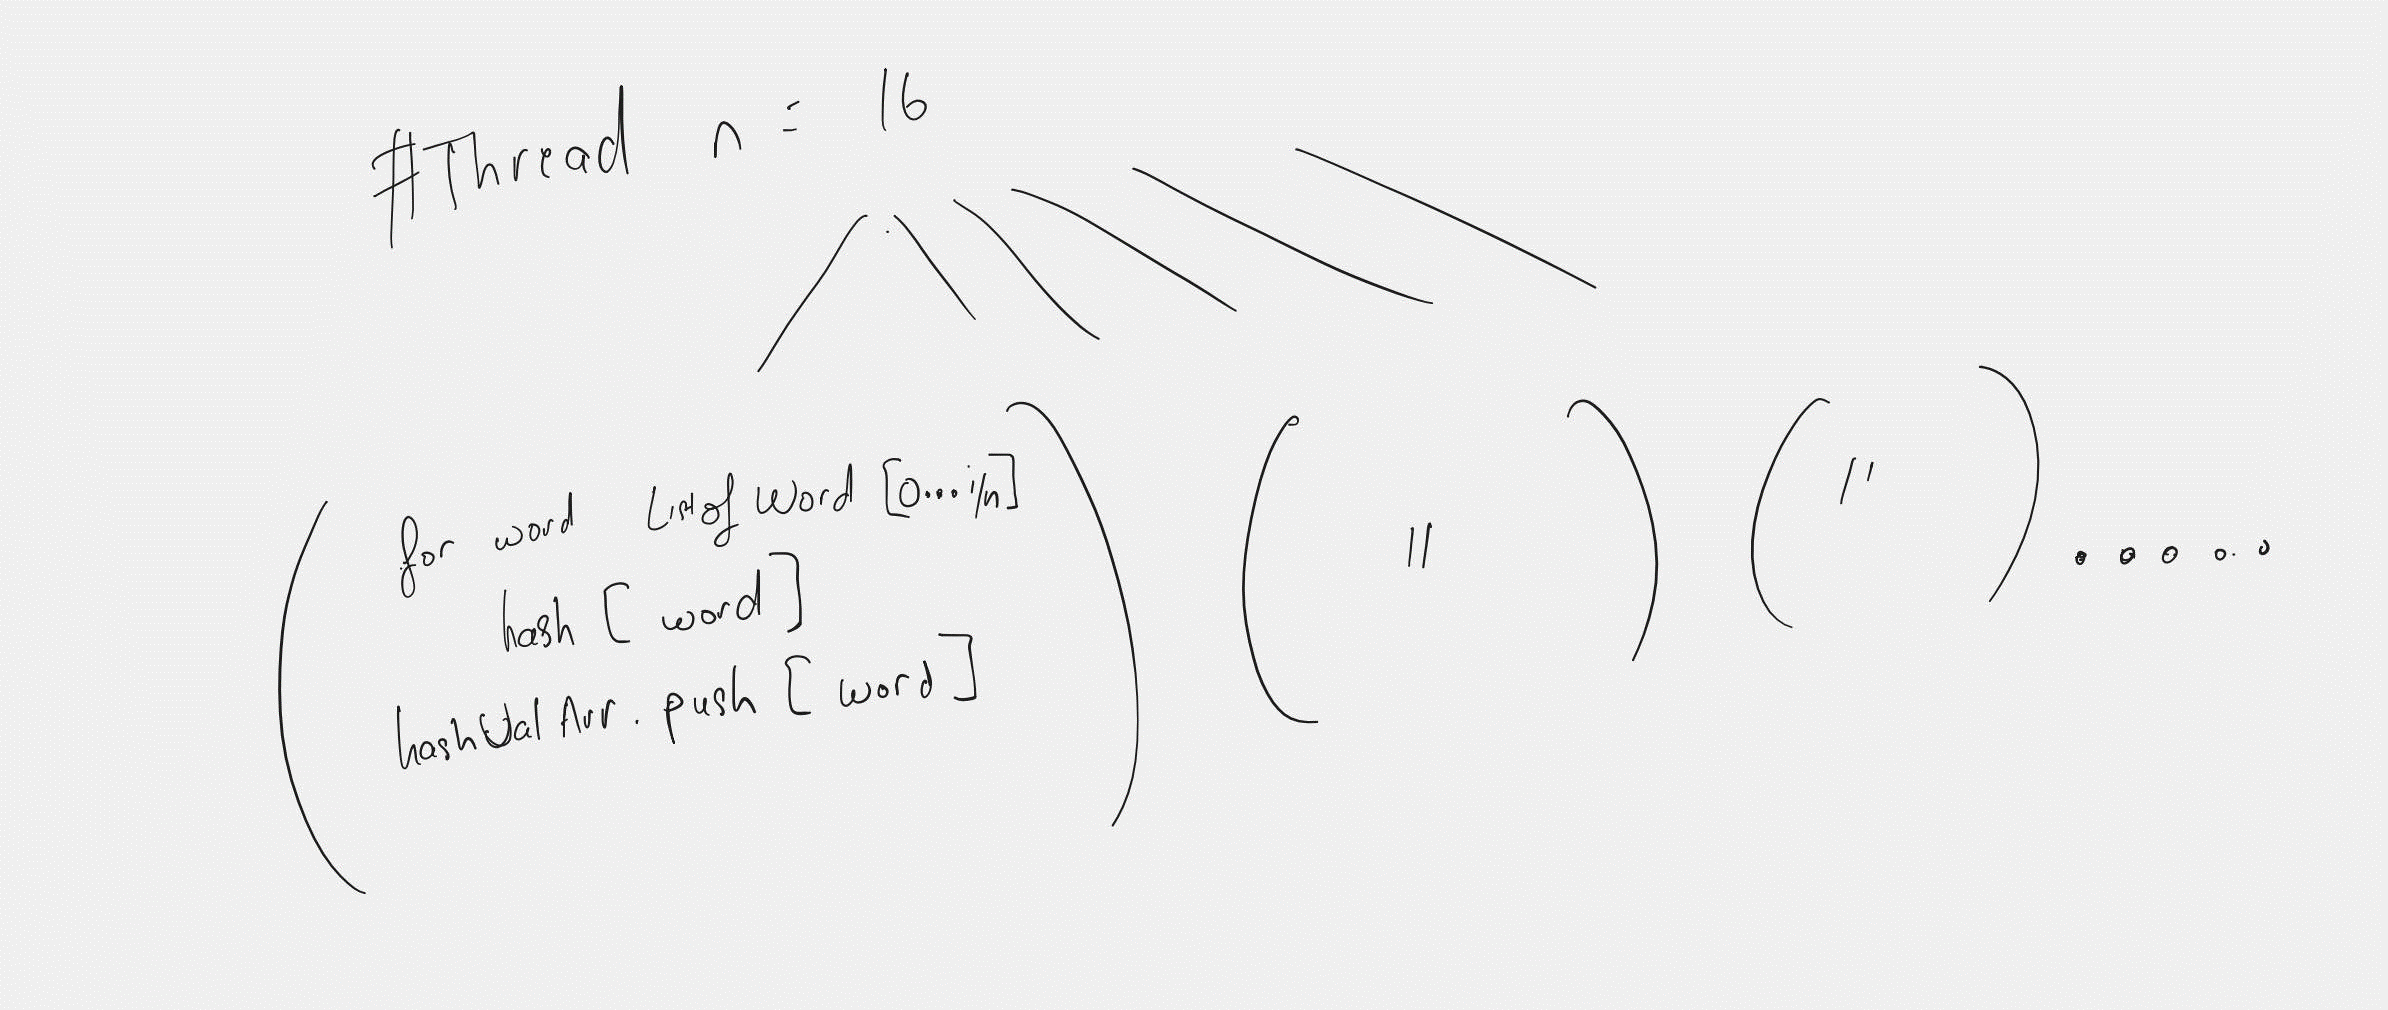 #Thread n = 16
for word List of Word [0...i/n]
hash [ word ]
hashValArr.push [ word ]
"
"
.....